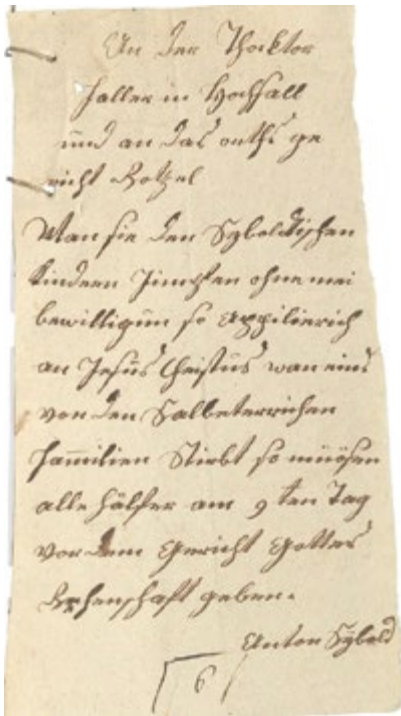 An der Thoktor
Haller in Hochsall
und an das ge
richt Rotzel
Wan sie den Syboldtischen
Kindern Jmpfen ohne mei
bewilligun so Appilierich
an Jesus Christus wan eins
von den Salbeterrichen
Familien Stirbt so müösen
alle hälfer am 9ten Tag
vor dem Gericht Gottes
Rehenschaft geben.
Anton Sybold
6